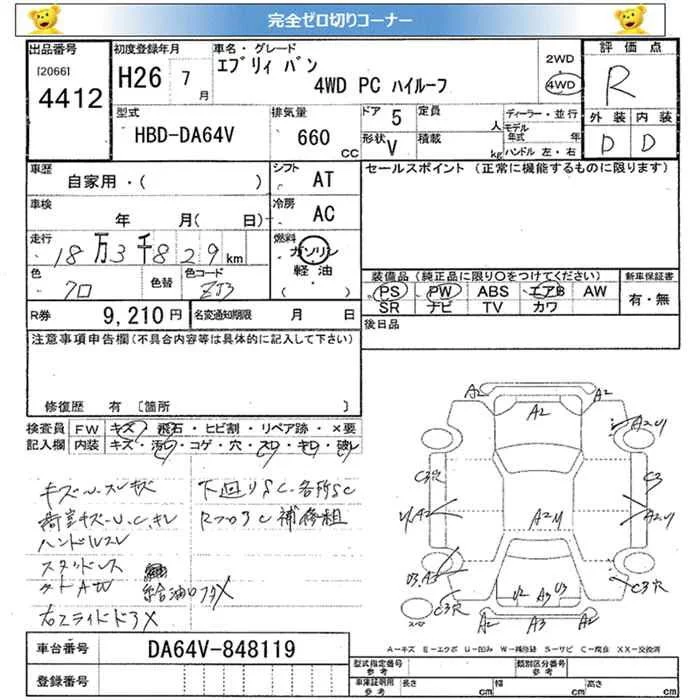 完全ゼロ切りコーナー
出品番号 初度登録年月 車名・グレード 評価点
[2066]
4412
H26 7月 エブリィ バン
4WD PC ハイルーフ
2WD
4WD
R
型式 排気量 ドア 定員 ディーラー・並行 外装 内装
HBD-DA64V 660 CC 5 人 モデル年式 年
形状 V 積載 kg ハンドル 左・右 D D
車歴 シフト セールスポイント (正常に機能するものに限ります)
自家用・( ) AT
車検 冷房
年 月( 日) AC
走行 燃料
18万3千829km ガソリン
軽油
( )
色 色替 色コード 装備品(純正品に限り○をつけてください) 新車保証書
クロ ZJ3 PS PW ABS エアB AW 有・無
SR ナビ TV カワ
R券 9,210円 名変通知期限 月 日 後日品
注意事項申告欄(不具合内容等は具体的に記入して下さい)
修復歴 有 [箇所 ]
検査員 FW キズ・飛石・ヒビ割・リペア跡・×要
記入欄 内装 キズ・汚レ・コゲ・穴・スレ・キレ・破レ
キズU.スレサビ 下廻りSC.各所SC
荷室キズ・U.C.キレ RフロアC補修粗
ハンドルスレ
スタッドレス
給油口フタX
右スライドドアX
A2 A2
A2
A2U
C3穴 C3
A2U
A2U
U3.A2
C3穴 U2 A3 U3 C3穴
スペア A2 A3 A2
A-キズ E-エクボ U-凹み W-補修跡 S-サビ C-腐食 XX-交換済
車台番号 DA64V-848119
登録番号
型式指定番号 参考 類別区分番号 参考
車庫証明用 参考 長さ cm 幅 cm 高さ cm